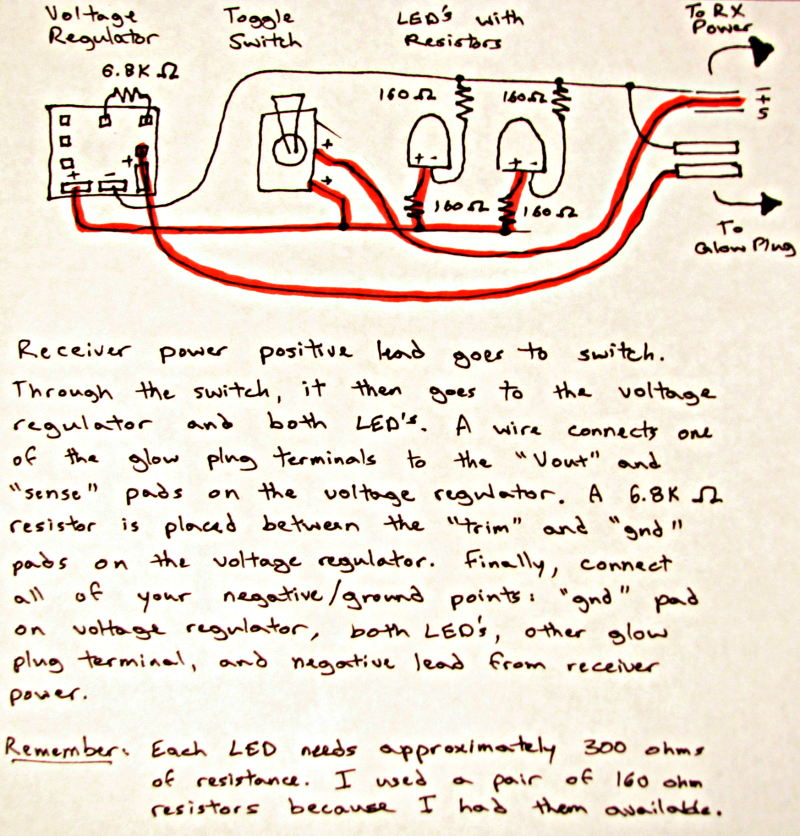 Voltage Regulator
Toggle Switch
LED's with Resistors
To RX Power
6.8K Ω
160Ω
160Ω
-
+
S
+
+
+
-
+
+ -
+ -
160Ω
160Ω
To Glow Plug
Receiver power positive lead goes to switch.
Through the switch, it then goes to the voltage
regulator and both LED's. A wire connects one
of the glow plug terminals to the "Vout" and
"sense" pads on the voltage regulator. A 6.8K Ω
resistor is placed between the "trim" and "gnd"
pads on the voltage regulator. Finally, connect
all of your negative/ground points: "gnd" pad
on voltage regulator, both LED's, other glow
plug terminal, and negative lead from receiver
power.
Remember: Each LED needs approximately 300 ohms
of resistance. I used a pair of 160 ohm
resistors because I had them available.